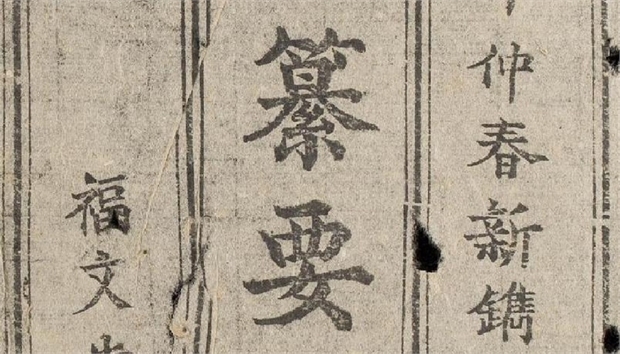 仲春新鐫
纂要
福文